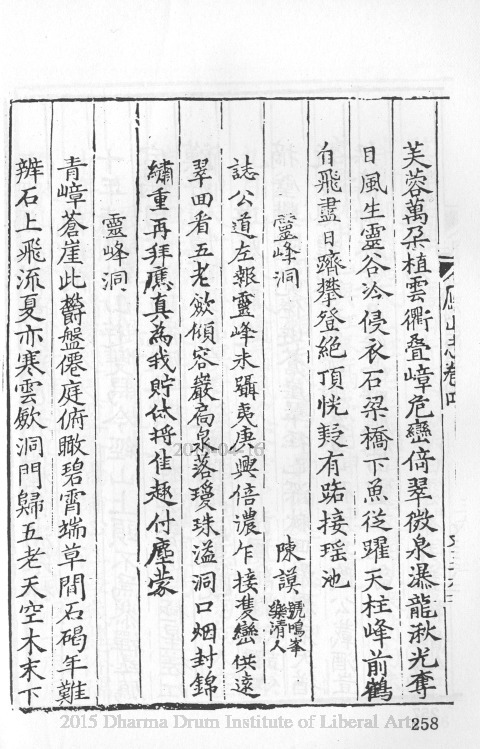 芙蓉萬朵植雲衢叠嶂危巒倚翠微泉瀑龍湫光奪
日風生靈谷冷侵衣石梁橋下魚從躍天柱峰前鶴
自飛盡日躋攀登絕頂恍疑有路接瑶池
靈峰洞 陳謨 號鳴峯樂清人
誌公道左報靈峰未躡夷庚興倍濃乍接隻巒供遠
翠回看五老斂傾容巖扃泉落瓊珠溢洞口烟封錦
繡重再拜應真為我貯休将佳趣付塵蒙
靈峰洞
青嶂蒼崖此欝盤僊庭俯瞰碧霄端草間石碣年難
辨石上飛流夏亦寒雲歛洞門歸五老天空木末下
志卷四
2015 Dharma Drum Institute of Liberal Arts
258